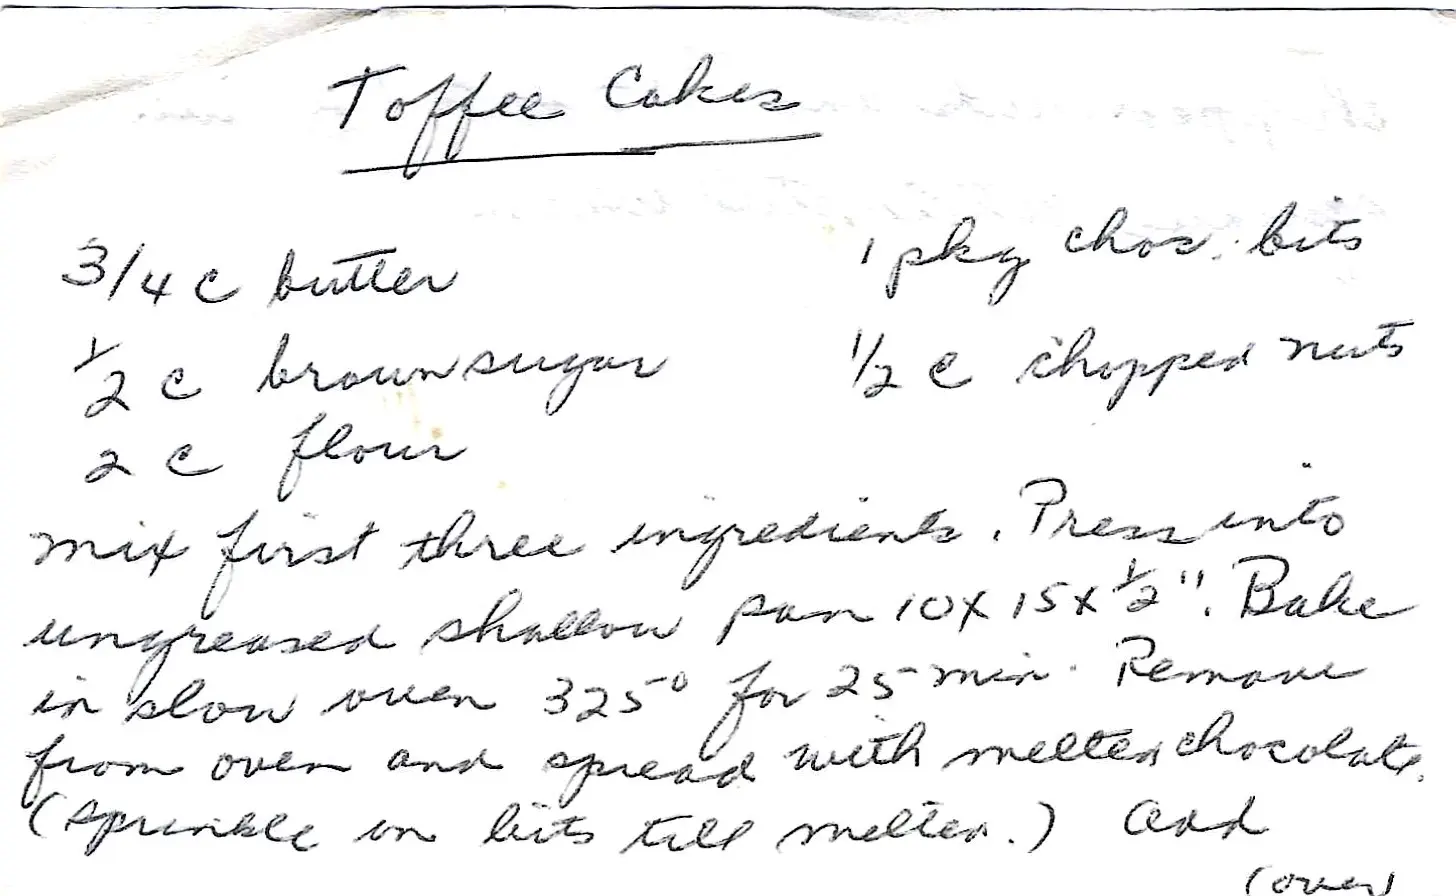 Toffee Cakes
3/4 c butter
1 pkg choc. bits
1/2 c brown sugar
1/2 c chopped nuts
2 c flour
mix first three ingredients. Press into
ungreased shallow pan 10x15x1/2". Bake
in slow oven 325° for 25 min. Remove
from oven and spread with melted chocolate.
(sprinkle on bits till melted.) Add
(over)